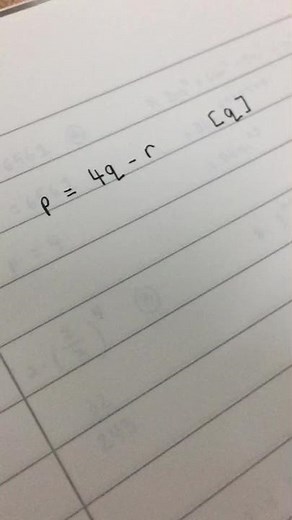 p = 4q - r [q]